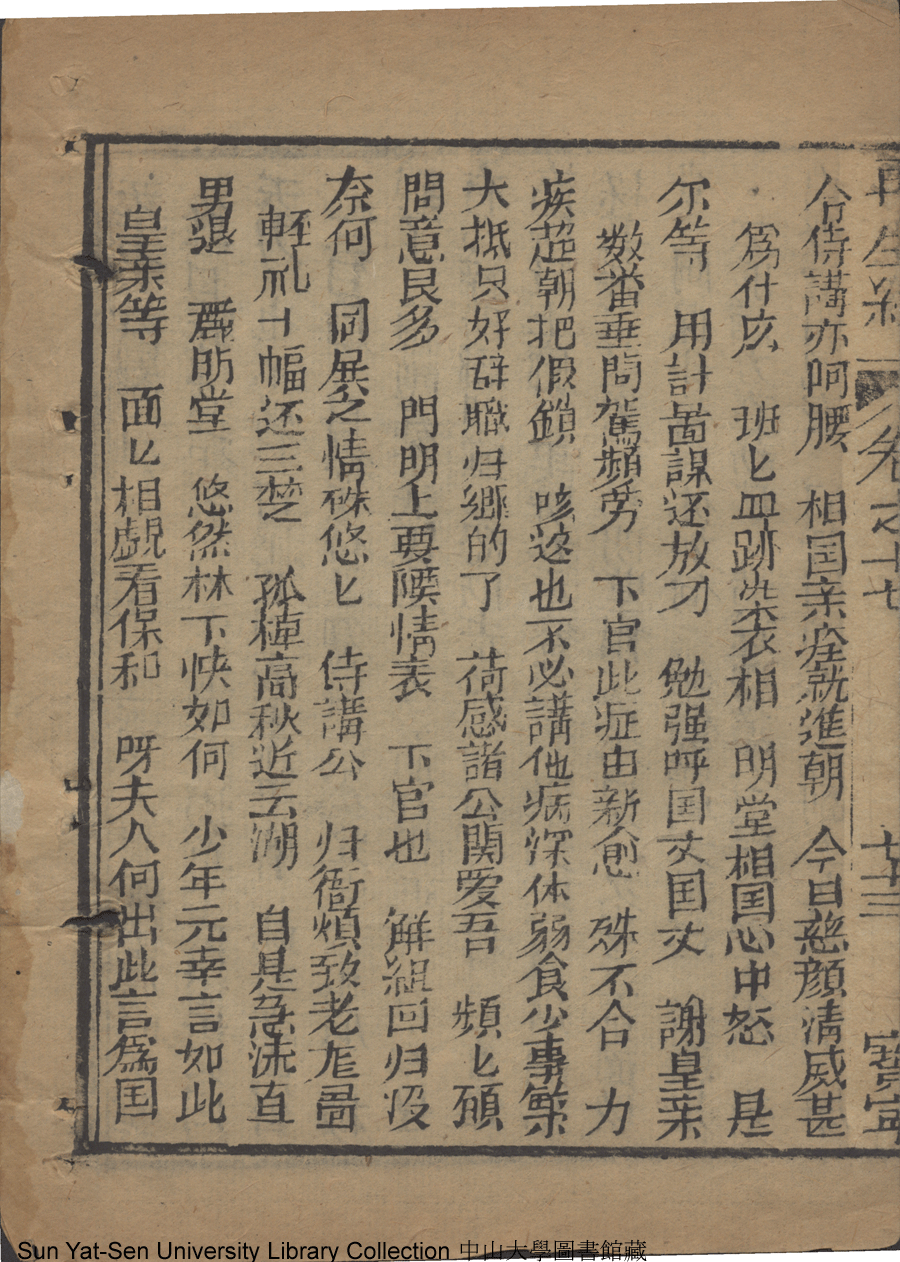 再生緣 卷之十七 七十三 寳寕
合侍講亦呵腰 相国亲痊就進朝 今日慈顔清威甚
爲什庅 班匕皿跡柒衣相 明堂相国心中怒 是
尔等 用計啚謀还放刁 勉强呼国丈国丈 謝皇亲
数番垂問駕頻劳 下官此症由新愈 殊不合 力
疾趋朝把假鎖 咳这也不必講他病深体弱食少事繁
大抵只好辞職归鄉的了 荷感諸公関爱吾 頻匕頋
問意良多 門明上要陳情表 下官也 解組回归没
奈何 同展之情殊悠匕 侍講公 归衙煩致老
輊礼 幅还三 孤棹高秋近云湖 自是急流直
男退 麗昉堂 悠然林下快如何 少年元幸言如此
皇亲等 面匕相覷看保和 呀夫人何出此言爲国
Sun Yat-Sen University Library Collection 中山大學圖書館藏